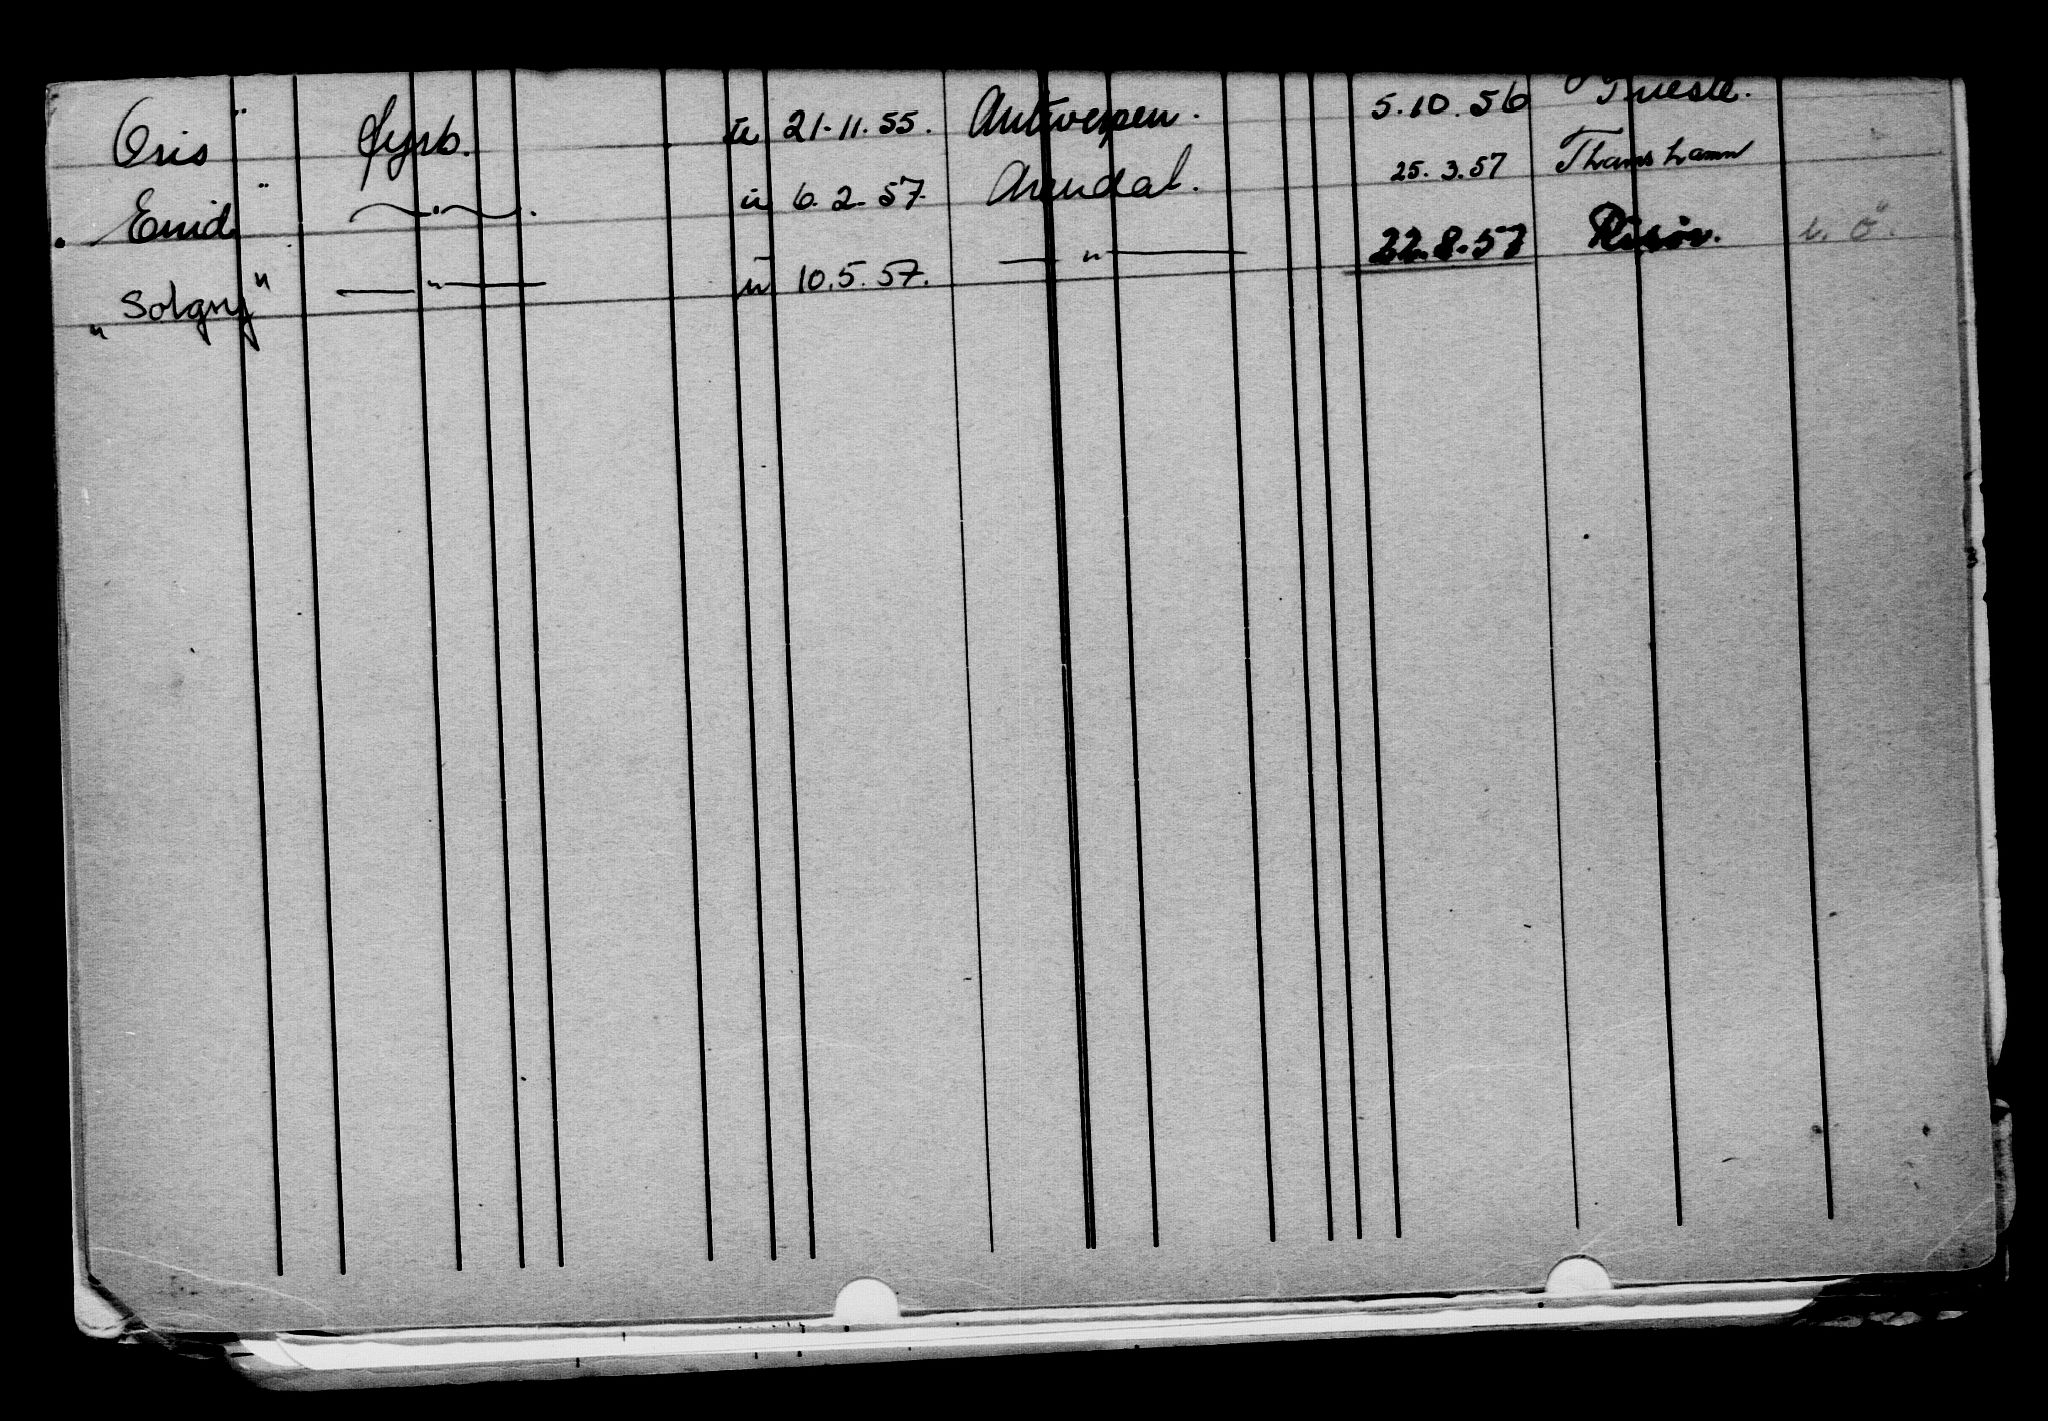 Eris " Fyrb. u 21.11.55. Antwerpen. 5.10.56 Trieste.
Enid " —"—. u 6.2.57. Arendal. 25.3.57 Thamshamn
"Solgny" —"— u 10.5.57. —"— 22.8.57 Risør.